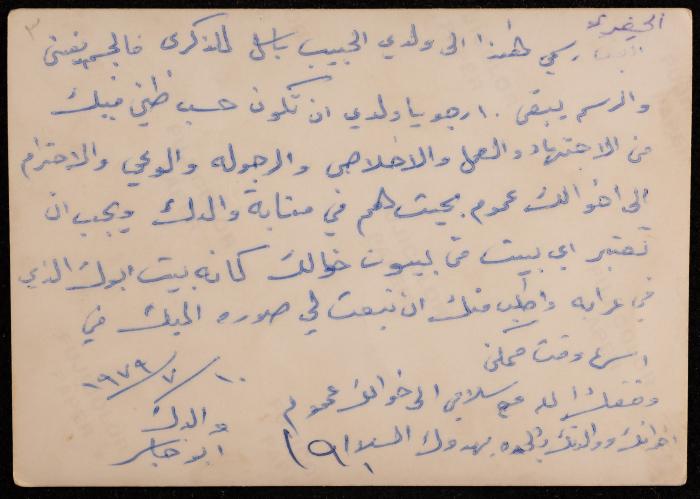 ٣
الحيفري
رسمي هذا الى ولدي الحبيب باسل للذكرى فالجسم يفنى
والرسم يبقى . ارجو يا ولدي ان تكون حسب ظني فيك
من الاجتهاد والعمل والاخلاص والرجوله والوعي والاحترام
الى اخوالك عموم بحيث هم في مثابة والدك ويجب ان
تعتبر اي بيت من بيوت خوالك كانه بيت ابوك الذي
في عرابه واطلب منك ان تبعث لي صوره اليك في
اسرع وقت ممكن
١٠/٧/١٩٧٩
وفقك الله مع سلامي الى خوالك عموم
والدك
اخوانك ووالدتك يهدوك السلام
ابو جابر